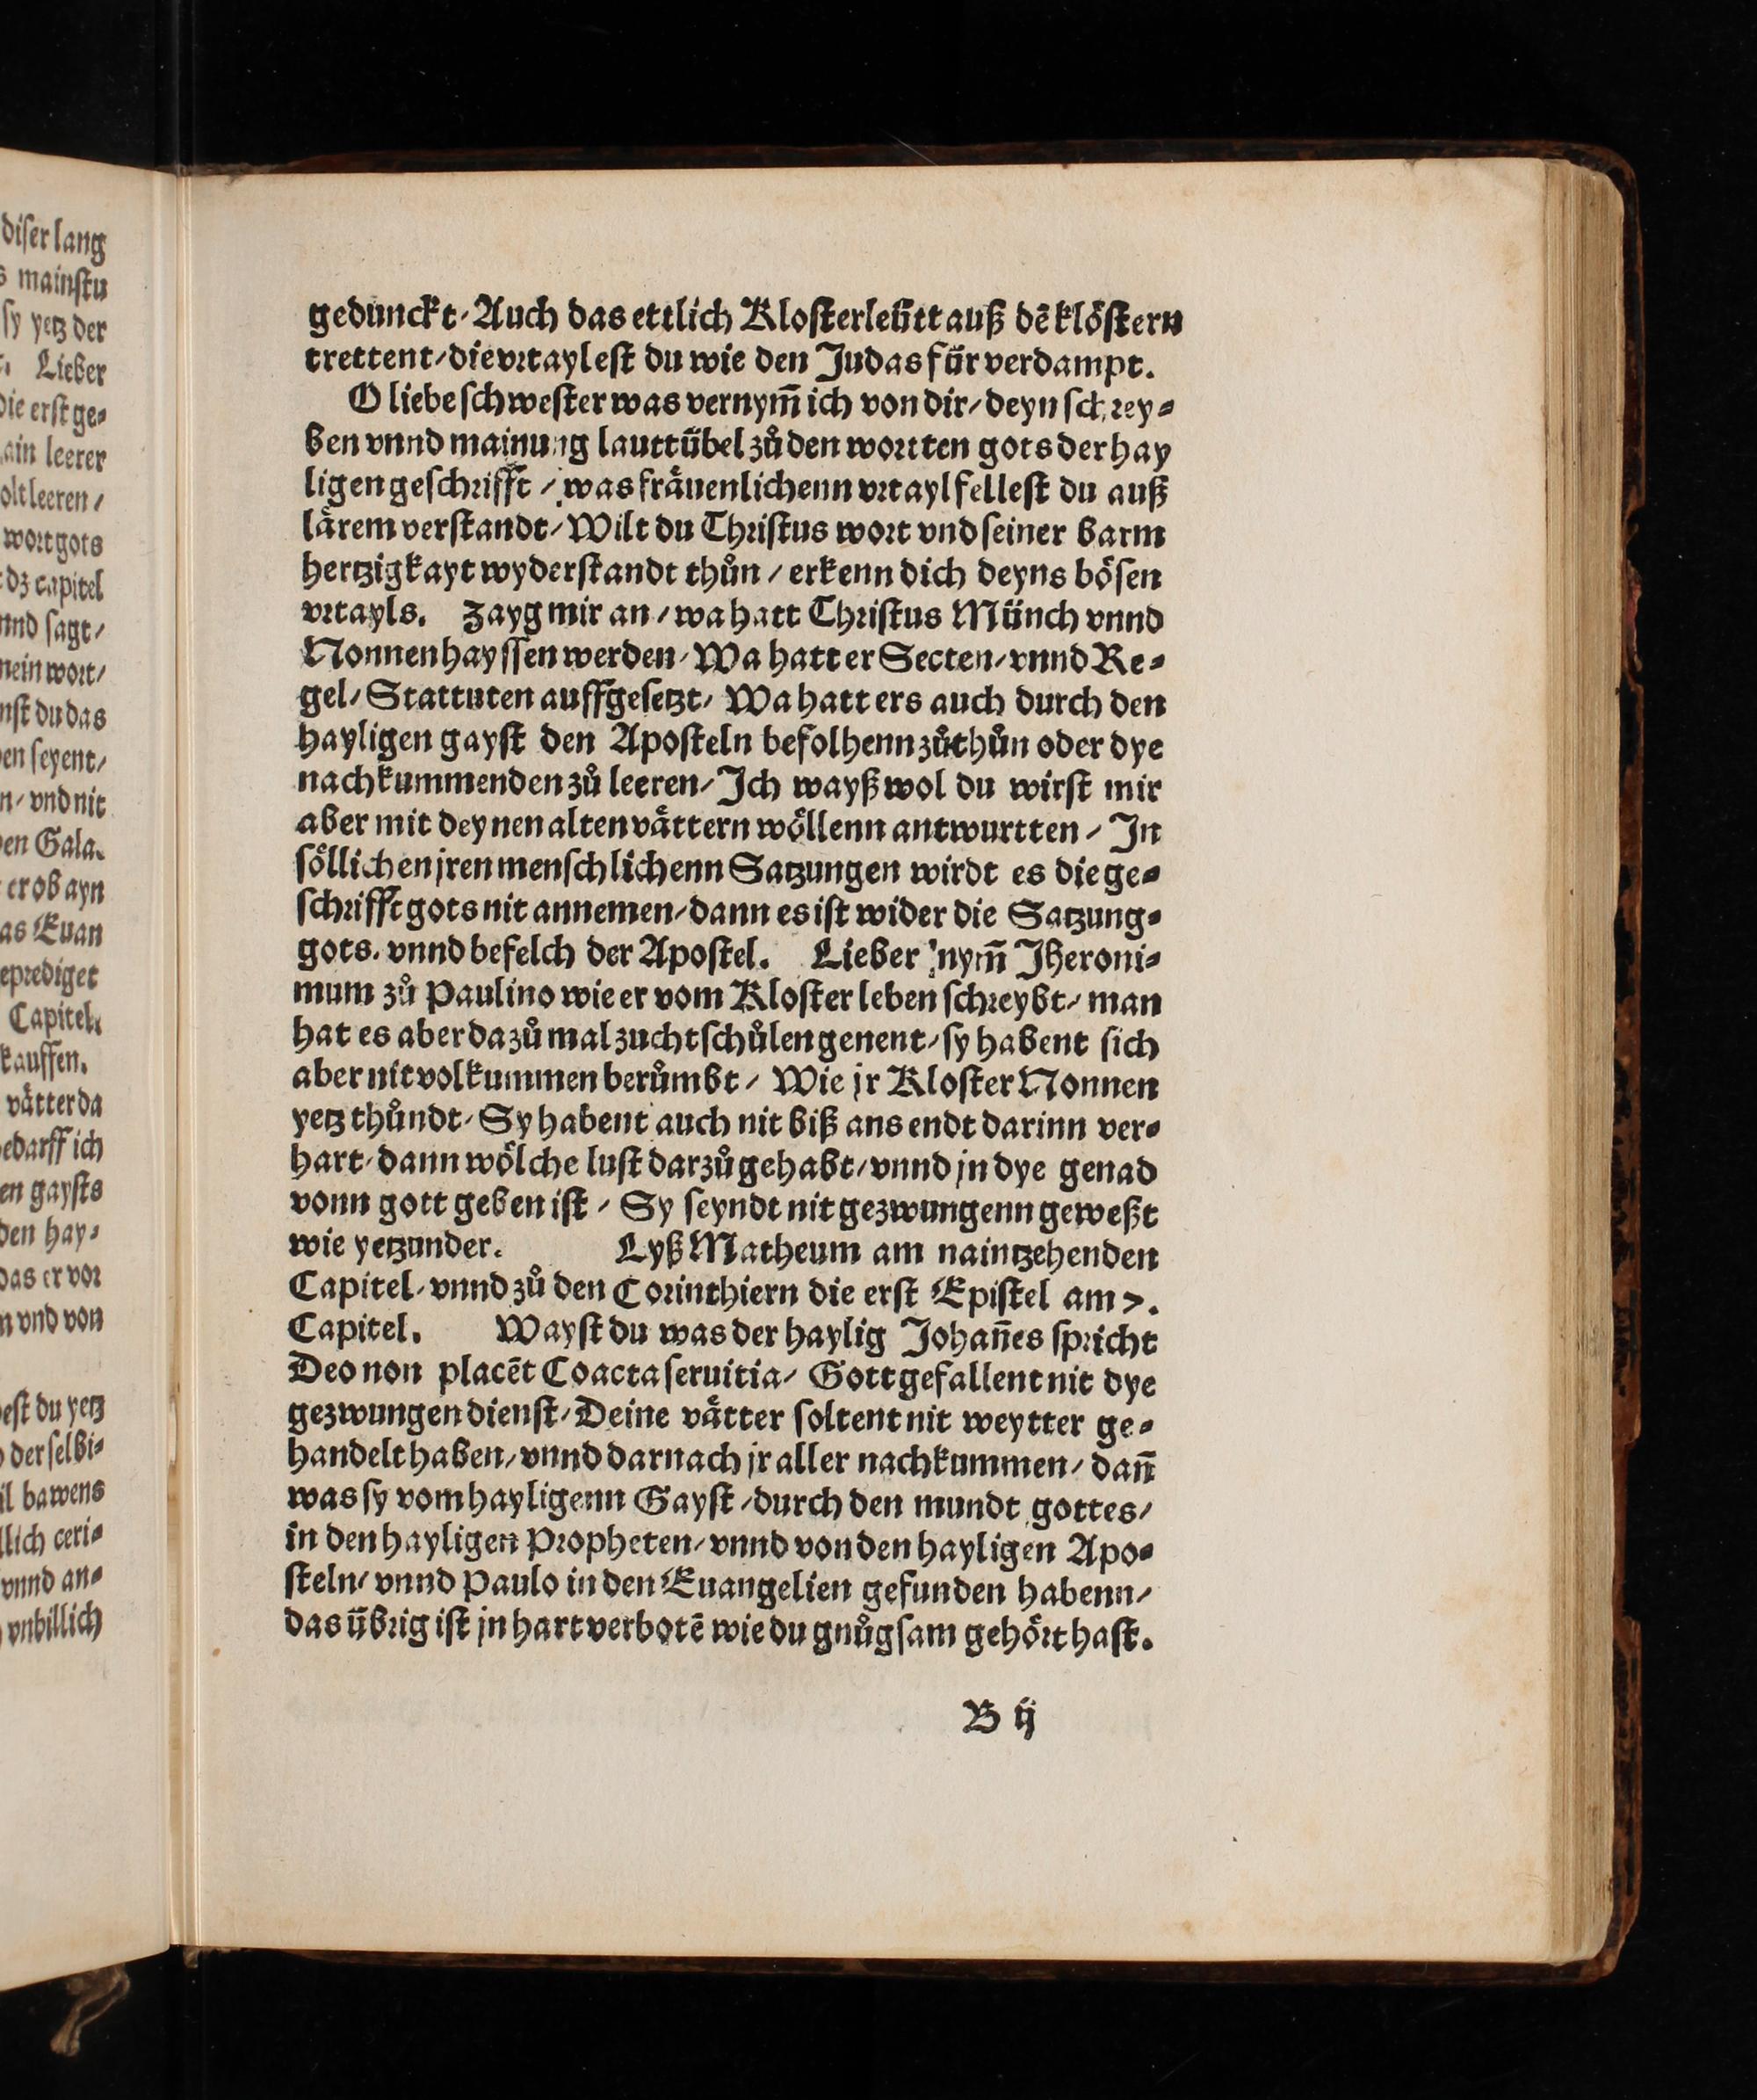 diser lang
mainstu
sy yetz der
Lieber
die erst ge-
ain leerer
olt leeren /
wort gots
dz capitel
nnd sagt /
mein wort /
nst du das
en seyent /
n / vnd nit
en Gala.
er ob ayn
as Euan
eprediget
Capitel.
kauffen.
vätter da
bedarff ich
en gaysts
den hay-
das er vor
n vnd von
est du yetz
der selbi-
il bawens
llich ceri-
vnnd an-
vnbillich
gedunckt / Auch das ettlich Klosterleütt auß dē klöstern
trettent / die vrtaylest du wie den Judas für verdampt.
O liebe schwester was vernym̃ ich von dir / deyn schrey-
ben vnnd mainung lautt übel zů den wortten gots der hay
ligen geschrifft / was fräuenlichenn vrtayl fellest du auß
lärem verstandt / Wilt du Christus wort vnd seiner barm
hertzigkayt wyderstandt thůn / erkenn dich deyns bösen
vrtayls. Zayg mir an / wa hatt Christus Münch vnnd
Nonnen hayssen werden / Wa hatt er Secten / vnnd Re-
gel / Stattuten auffgesetzt / Wa hatt ers auch durch den
hayligen gayst den Aposteln befolhenn zůthůn oder dye
nachkummenden zů leeren / Ich wayß wol du wirst mir
aber mit deynen alten vättern wöllenn antwurtten / In
söllichen jren menschlichenn Satzungen wirdt es die ge-
schrifft gots nit annemen / dann es ist wider die Satzung-
gots. vnnd befelch der Apostel. Lieber nym̃ Jheroni-
mum zů Paulino wie er vom Kloster leben schreybt / man
hat es aber dazů mal zuchtschůlen genent / sy habent sich
aber nit volkummen berůmbt / Wie jr Kloster Nonnen
yetz thůndt / Sy habent auch nit biß ans endt darinn ver-
hart / dann wölche lust darzů gehabt / vnnd jn dye genad
vonn gott geben ist / Sy seyndt nit gezwungenn geweßt
wie yetzunder. Lyß Matheum am naintzehenden
Capitel / vnnd zů den Corinthiern die erst Epistel am 7.
Capitel. Wayst du was der haylig Johan̄es spricht
Deo non placēt Coacta seruitia / Gott gefallent nit dye
gezwungen dienst / Deine vätter soltent nit weytter ge-
handelt haben / vnnd darnach jr aller nachkummen / dan̄
was sy vom hayligenn Gayst / durch den mundt gottes /
in den hayligen Propheten / vnnd von den hayligen Apo-
steln / vnnd Paulo in den Euangelien gefunden habenn /
das übrig ist jn hart verbotē wie du gnůgsam gehört hast.
B ij